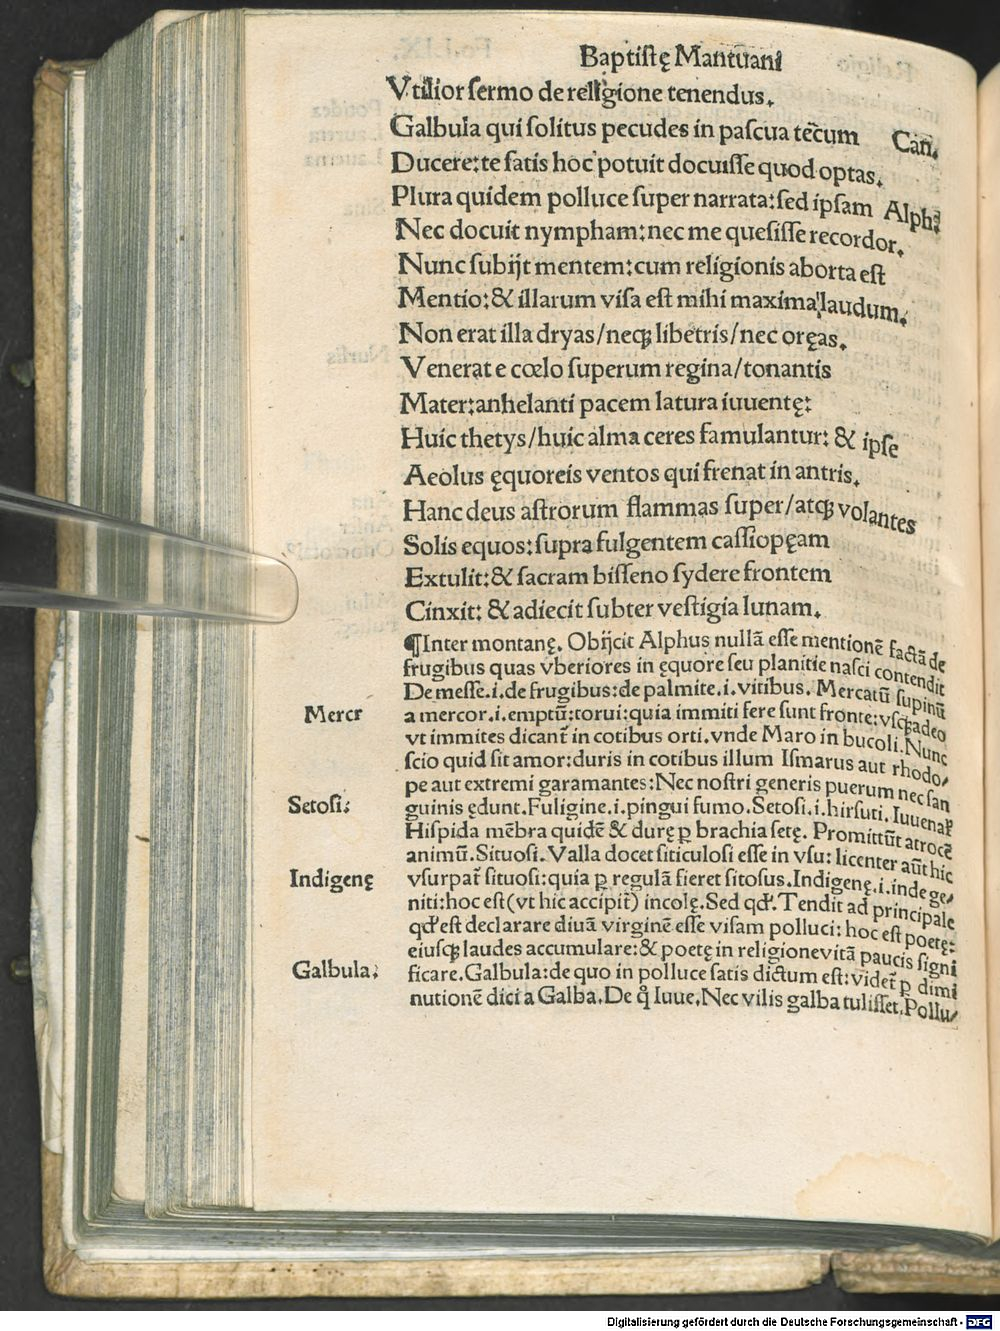 Baptistę Mantuani
Vtilior sermo de religione tenendus.
Galbula qui solitus pecudes in pascua tecum Can.
Ducere: te satis hoc potuit docuisse quod optas.
Plura quidem polluce super narrata: sed ipsam Alph:
Nec docuit nympham: nec me quesisse recordor.
Nunc subijt mentem: cum religionis aborta est
Mentio: & illarum visa est mihi maxima laudum.
Non erat illa dryas/neqꝫ libetris/nec oręas.
Venerat e cœlo superum regina/tonantis
Mater: anhelanti pacem latura iuuentę:
Huic thetys/huic alma ceres famulantur: & ipse
Aeolus ęquoreis ventos qui frenat in antris.
Hanc deus astrorum flammas super/atqꝫ volantes
Solis equos: supra fulgentem cassiopęam
Extulit: & sacram bisseno sydere frontem
Cinxit: & adiecit subter vestigia lunam.
¶Inter montanę. Obijcit Alphus nullā esse mentionē factā de
frugibus quas vberiores in ęquore seu planitie nasci contendit
De messe.i.de frugibus: de palmite.i.vitibus. Mercatū supinū
Mercr a mercor.i.emptū: torui: quia immiti fere sunt fronte: vsqꝫadeo
vt immites dicant̄ in cotibus orti. vnde Maro in bucoli. Nunc
scio quid sit amor: duris in cotibus illum Ismarus aut rhodo/
pe aut extremi garamantes: Nec nostri generis puerum nec san
Setosi: guinis ędunt. Fuligine.i.pingui fumo. Setosi.i.hirsuti. Iuuenaƚ
Hispida mēbra quidē & durę ꝑ brachia setę. Promittūt atrocē
animū. Situosi. Valla docet siticulosi esse in vsu: licenter aūt hic
Indigenę vsurpat̄ situosi: quia ꝑ regulā fieret sitosus. Indigenę.i.inde ge/
niti: hoc est (vt hic accipit̄) incolę. Sed qđ. Tendit ad principale
qđ est declarare diuā virginē esse visam polluci: hoc est poetę:
eiusqꝫ laudes accumulare: & poetę in religione vitā paucis signi
Galbula: ficare. Galbula: de quo in polluce satis dictum est: videt̄ ꝑ dimi
nutionē dici a Galba. De q̊ Iuue. Nec vilis galba tulisset. Pollu/
Digitalisierung gefördert durch die Deutsche Forschungsgemeinschaft - DFG